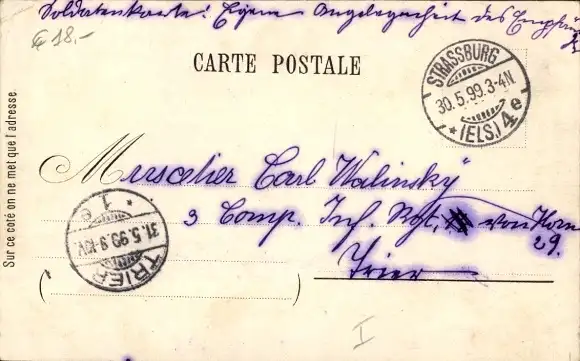 Soldatenkarte! Eigene Angelegenheit des Empfäng
€ 18,-
CARTE POSTALE
STRASSBURG
30.5.99.3-4N
* (ELS.) 4e
Sur ce coté on ne met que l'adresse
Musketier Carl Walinsky
3 Comp. Inf. Rgt. von Horn
29.
Trier
TRIER
31.5.99.9-10V
* 1 e
I